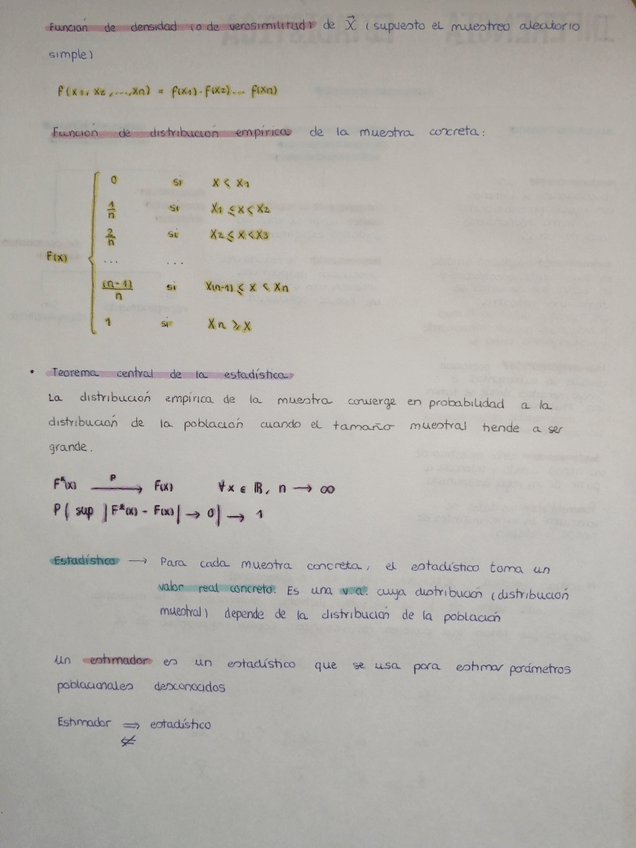 Función de densidad (o de verosimilitud) de X⃗. (supuesto el muestreo aleatorio
simple)
f(x1, x2, ..., xn) = f(x1) · f(x2) ... f(xn)
Función de distribución empírica de la muestra concreta:
0 si x < x1
1/n si x1 ≤ x < x2
2/n si x2 ≤ x < x3
F(x)
... ...
(n-1)/n si x(n-1) ≤ x < xn
1 si xn ≥ x
• Teorema central de la estadística
La distribución empírica de la muestra converge en probabilidad a la
distribución de la población cuando el tamaño muestral tiende a ser
grande.
F*(x) —P→ F(x) ∀x ∈ ℝ, n → ∞
P( sup |F*(x) - F(x)| → 0) → 1
Estadístico → Para cada muestra concreta, el estadístico toma un
valor real concreto. Es una v.a. cuya distribución (distribución
muestral) depende de la distribución de la población
Un estimador es un estadístico que se usa para estimar parámetros
poblacionales desconocidos
Estimador ⇒ estadístico
⇍